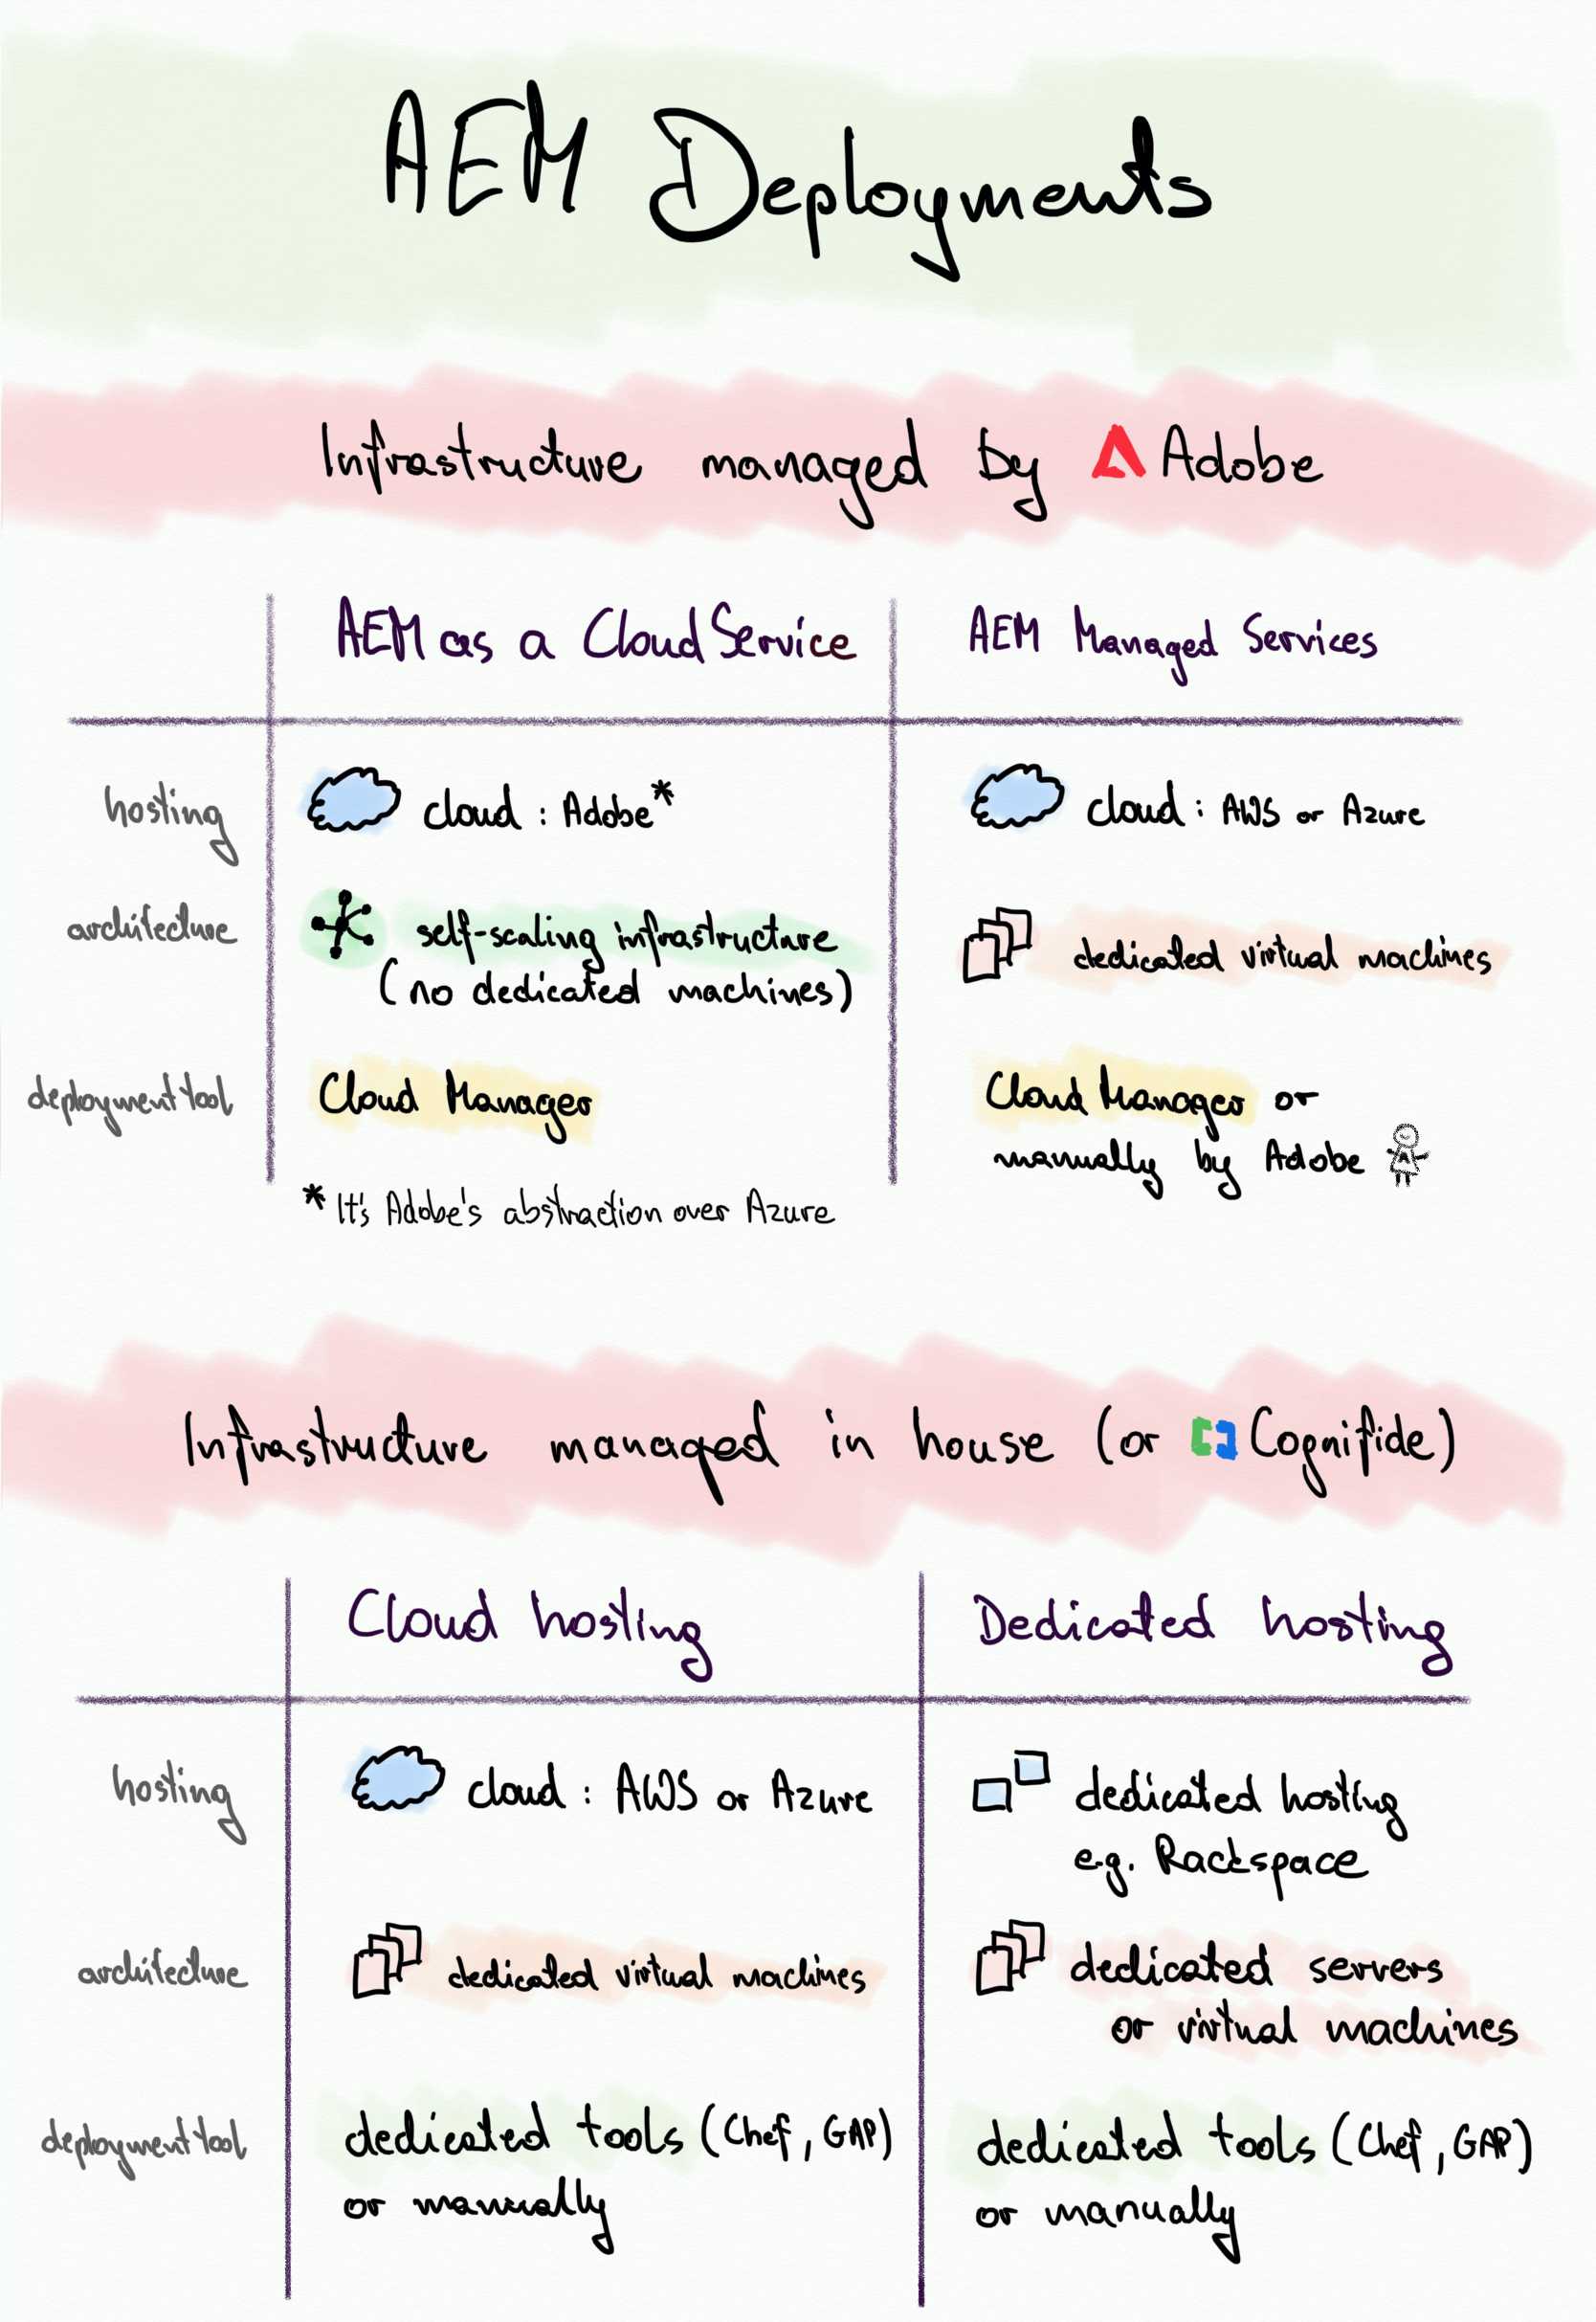 AEM Deployments
Infrastructure managed by Adobe
AEM as a Cloud Service
AEM Managed Services
hosting
cloud : Adobe*
cloud : AWS or Azure
architecture
self-scaling infrastructure
(no dedicated machines)
dedicated virtual machines
deployment tool
Cloud Manager
Cloud Manager or
manually by Adobe
* It's Adobe's abstraction over Azure
Infrastructure managed in house (or Cognifide)
Cloud hosting
Dedicated hosting
hosting
cloud : AWS or Azure
dedicated hosting
e.g. Rackspace
architecture
dedicated virtual machines
dedicated servers
or virtual machines
deployment tool
dedicated tools (Chef, GAP)
or manually
dedicated tools (Chef, GAP)
or manually